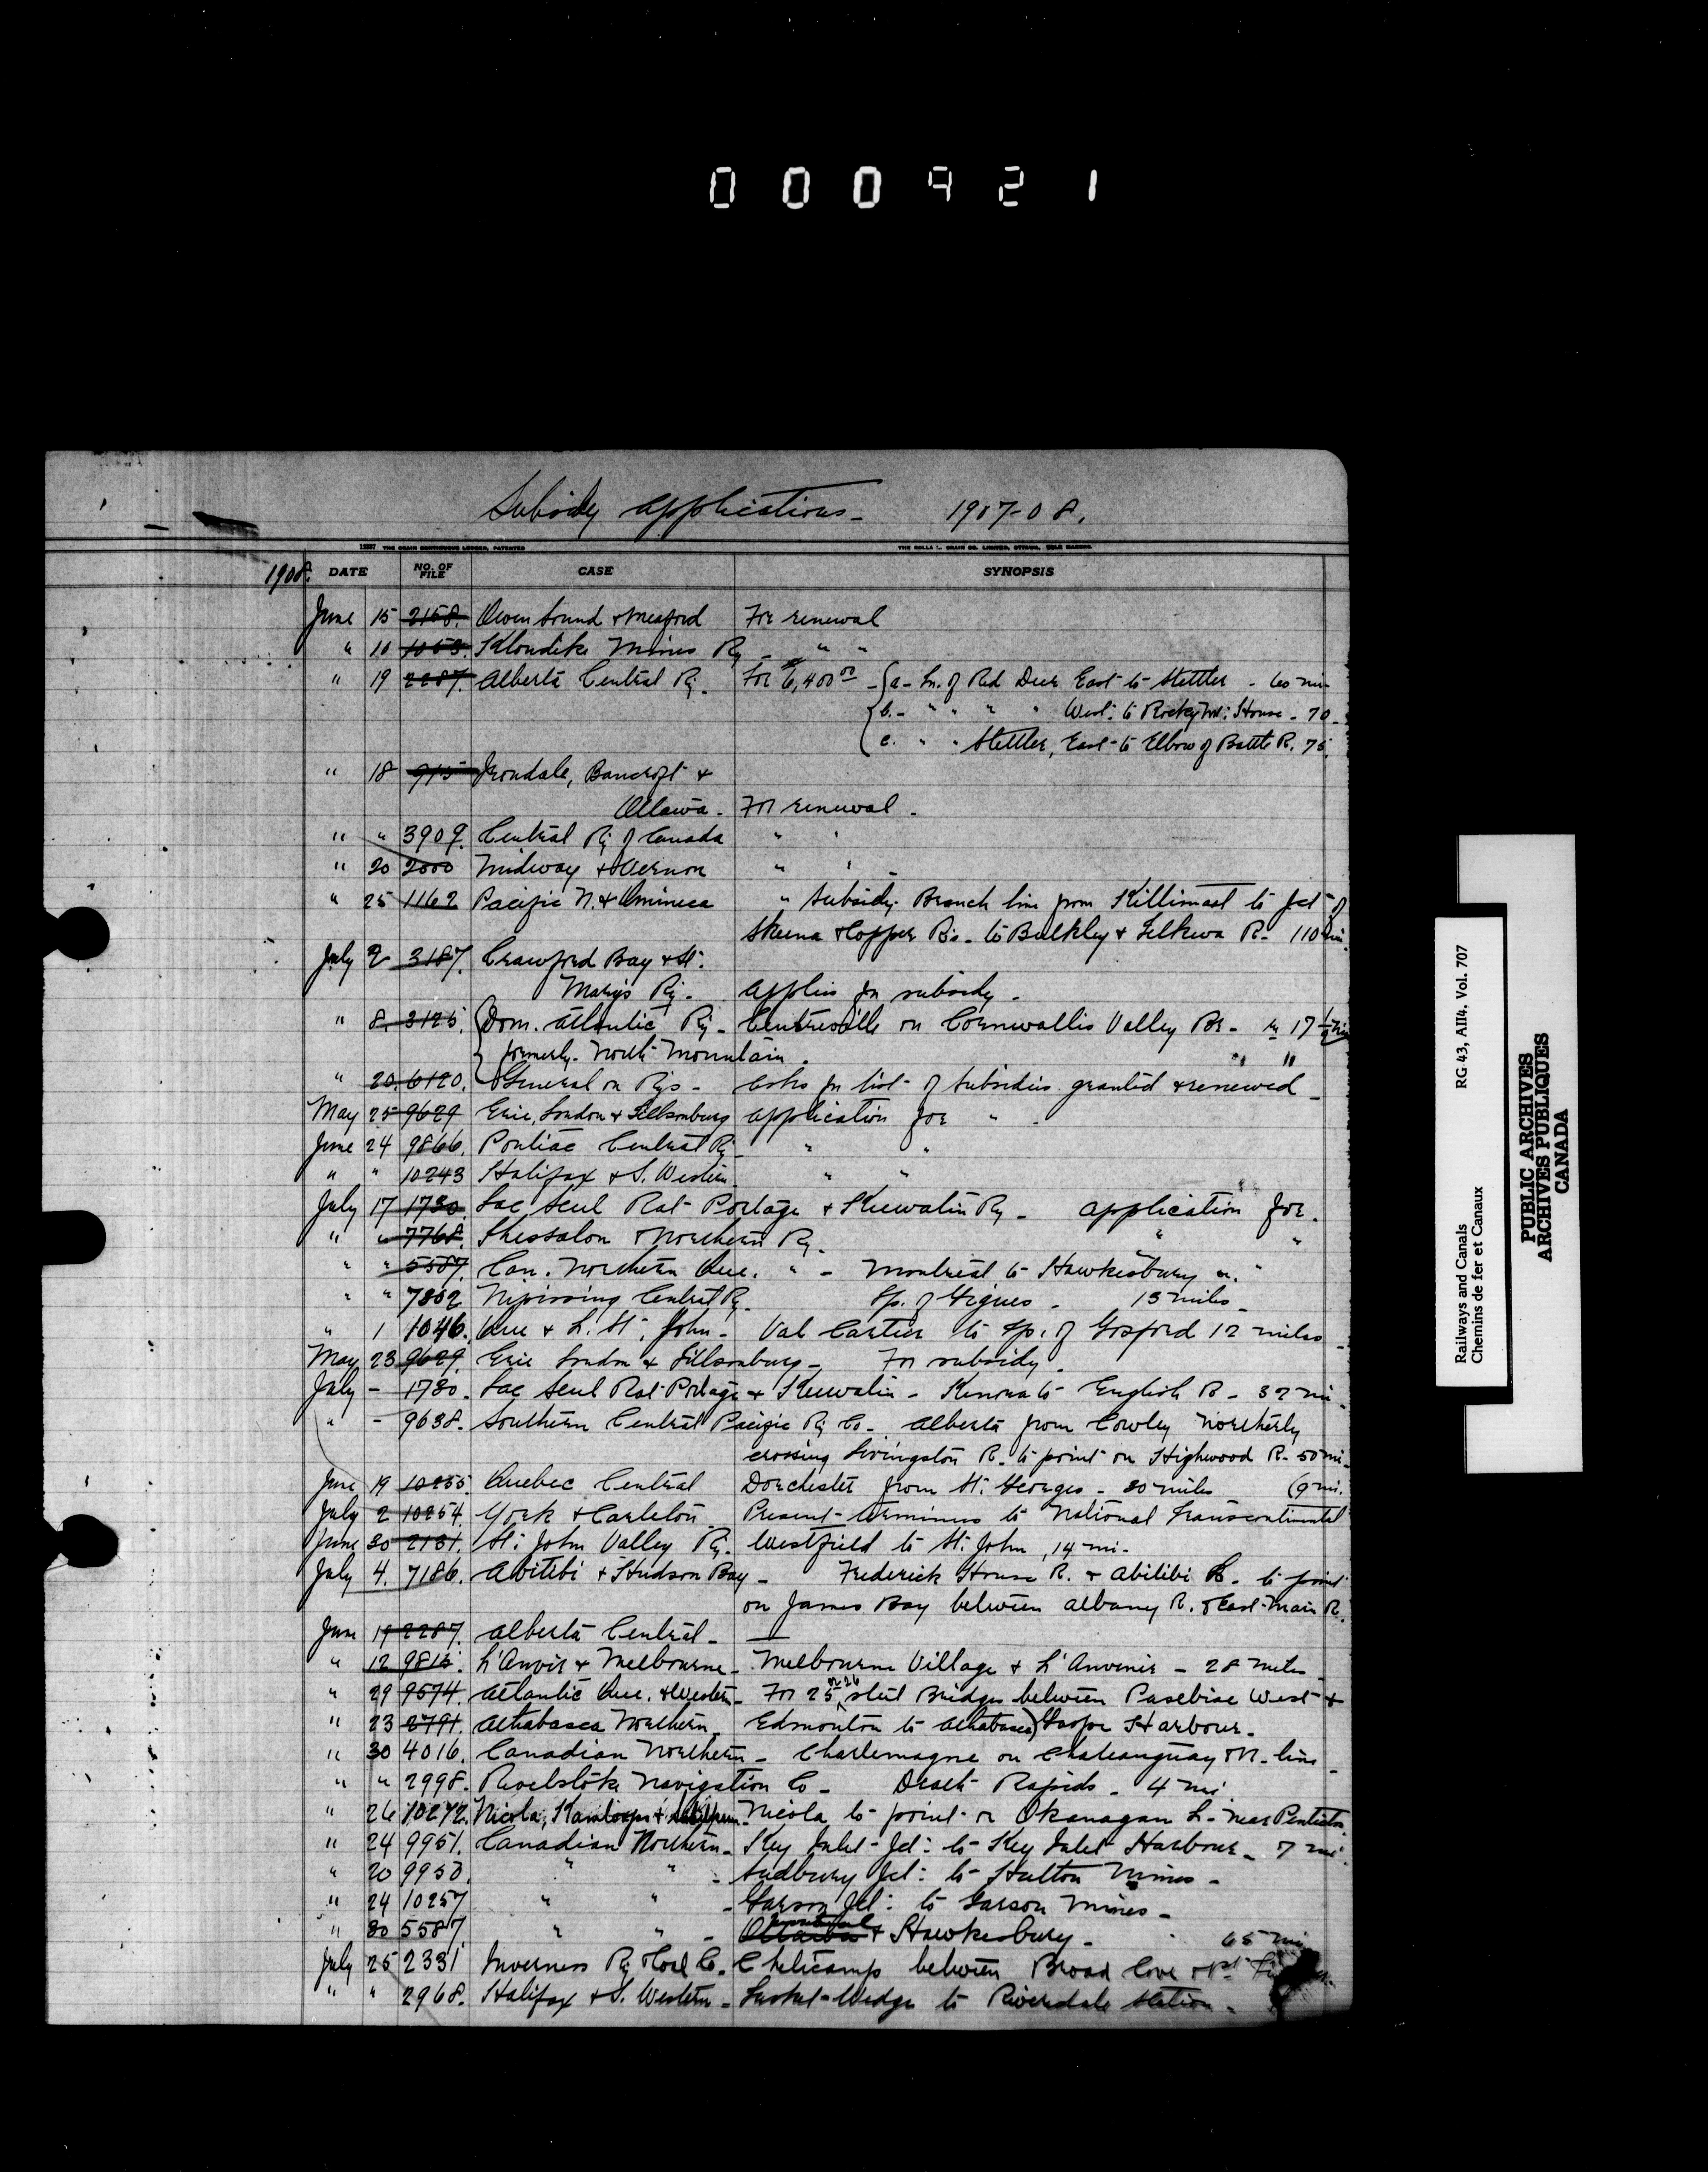 000921
Subsidy applications - 1907-08.
12887 THE CRAIN CONTINUOUS LEDGER, PATENTED THE ROLLA L. CRAIN CO. LIMITED, OTTAWA, SOLE MAKERS.
1908. DATE NO. OF FILE CASE SYNOPSIS
June 15 2158. Owen Sound & Meaford For renewal
" 16 1053. Klondike Mines Ry - " "
" 19 2287. Alberta Central Ry. For $6,400.00 - { a - Tn. of Red Deer East to Stettler - 60 mi
{ b. - " " " " West: to Rocky Mt: House - 70 -
{ c. " " Stettler, East to Elbow of Battle R. 75.
" 18 915 Irondale, Bancroft &
Ottawa. For renewal.
" " 3909. Central Ry of Canada " "
" 20 2000 Midway & Vernon " " -
" 25 1162 Pacific N. & Omineca " Subsidy. Branch line from Killimaat to Jct of
Skeena & Copper Rs. to Bulkley & Telkwa R. 110 mi.
July 2 3187. Crawford Bay & St.
Mary's Ry. applies for subsidy.
" 8. 3125. { Dom. Atlantic Ry - Centreville on Cornwallis Valley Br. 17 1/2 mi
{ formerly North Mountain. " "
" 20. 6120. General on Rys - Asks for list of subsidies granted & renewed -
May 25 9629 Erie, London & Tillsonburg application for " -
June 24 9866. Pontiac Central Ry " "
" " 10243 Halifax & S. Western " "
July 17 1730. Lac Seul Rat Portage & Keewatin Ry - application for.
" " 7768. Thessalon & Northern Ry. " "
" " 5587. Can. Northern Que. " - Montreal to Hawkesbury " "
" " 7802 Nipissing Central Ry. Tp. of Gigues - 13 miles -
" 1 1046. Que & L. St. John - Val Cartier to Tp. of Gosford 12 miles -
May 23 9629. Erie London & Tillsonburg - For subsidy.
July - 1730. Lac Seul Rat Portage & Keewatin - Kenora to English R - 32 mi.
" - 9638. Southern Central Pacific Ry Co - Alberta from Cowley Northerly
crossing Livingston R. to point on Highwood R. 50 mi.
June 19 10255. Quebec Central Dorchester from St: Georges - 30 miles (9 mi.
July 2 10254. York & Carleton Present terminus to National Transcontinental
June 30 2131. St: John Valley Ry. Westfield to St: John, 14 mi.
July 4. 7186. Abitibi & Hudson Bay - Frederick House R. & Abitibi L. to point
on James Bay between Albany R. & East Main R.
June 19 2287. Alberta Central - —
" 12 9815. L'Anvir & Melbourne - Melbourne Village & L'Anvenir - 28 miles -
" 29 9574. Atlantic Que. & Western - For 25 or 26 steel Bridges between Pasebiac West &
" 23 2791. Athabasca Northern. Edmonton to Athabasca) Gaspe Harbour.
" 30 4016. Canadian Northern - Charlemagne on Chateauguay & N. line -
" " 2998. Revelstoke Navigation Co - Death Rapids - 4 mi
" 26 10272. Nicola, Kamloops & Nicola to point on Okanagan L. near Penticton.
" 24 9951. Canadian Northern - Key Inlet Jct: to Key Inlet Harbour - 7 mi.
" 20 9950. " " - Sudbury Jct: to Hutton Mines -
" 24 10257 " " - Garson Jct: to Garson Mines -
" 30 5587. " " - Montreal & Hawkesbury - 65 mi
July 25 2331 Inverness Ry & Coal Co. Cheticamp between Broad Cove & Pt.
" " 2968. Halifax & S. Western - Tusket Wedge to Riverdale station -
Railways and Canals RG 43, AII4, Vol. 707
Chemins de fer et Canaux
PUBLIC ARCHIVES
ARCHIVES PUBLIQUES
CANADA